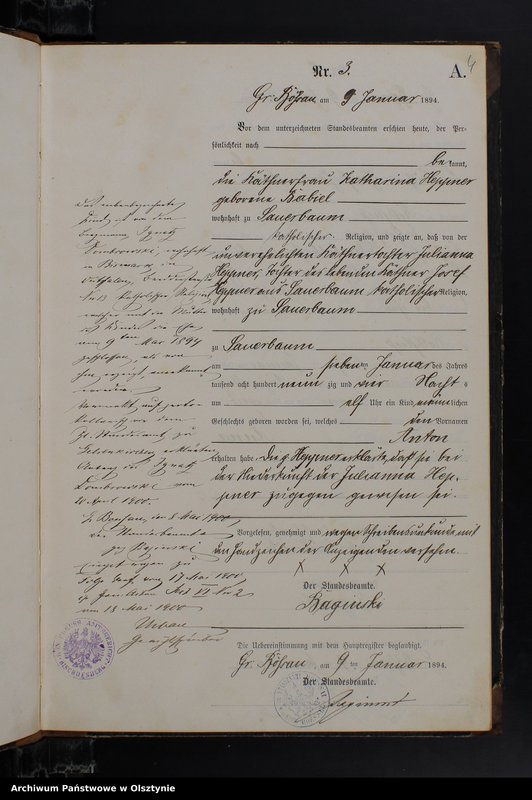 4
Nr. 3.
A.
Gr. Bößau am 9 Januar 1894.
Vor dem unterzeichneten Standesbeamten erschien heute, der Per-
sönlichkeit nach
be kannt,
die Käthnerfrau Katharina Heppner
geborene Babiel
wohnhaft zu Lauerbaum
katholischer Religion, und zeigte an, daß von der
unverehelichten Käthnertochter Julianna
Heppner, Tochter des lebenden Käthner Josef
Heppner aus Lauerbaum katholischer Religion,
wohnhaft zu Lauerbaum
zu Lauerbaum
am sieben ten Januar des Jahres
tausend acht hundert neun zig und vier Nachts
um elf Uhr ein Kind männlichen
Geschlechts geboren worden sei, welches den Vornamen
Anton
erhalten habe. Die p Heppner erklärte, daß sie bei
der Niederkunft der Julianna Hep-
pner zugegen gewesen sei.
Vorgelesen, genehmigt und wegen Schreibensunkunde mit
den Handzeichen der Anzeigenden versehen.
X X X
Der Standesbeamte.
Baginski
Die Uebereinstimmung mit dem Hauptregister beglaubigt.
Gr. Bößau, am 9 ten Januar 1894.
Der Standesbeamte.
Das nebenbezeichnete
Kind ist von dem
Bergmann Ignatz
Dombrowski, wohnhaft
in Bismarck,
Westfalen,
katholischer Religion
am 9ten Mai 1894
geschlossen, als von
ihm erzeugt, anerkannt
worden.
Vermerkt auf
vor dem
Standesamt zu
Ignatz
Dombrowski vom
April 1900.
Gr. Boessau, den 8 Mai 1900
Der Standesbeamte
gez Baginski
17 Mai 1900
am 18 Mai 1900
Urban
Archiwum Państwowe w Olsztynie